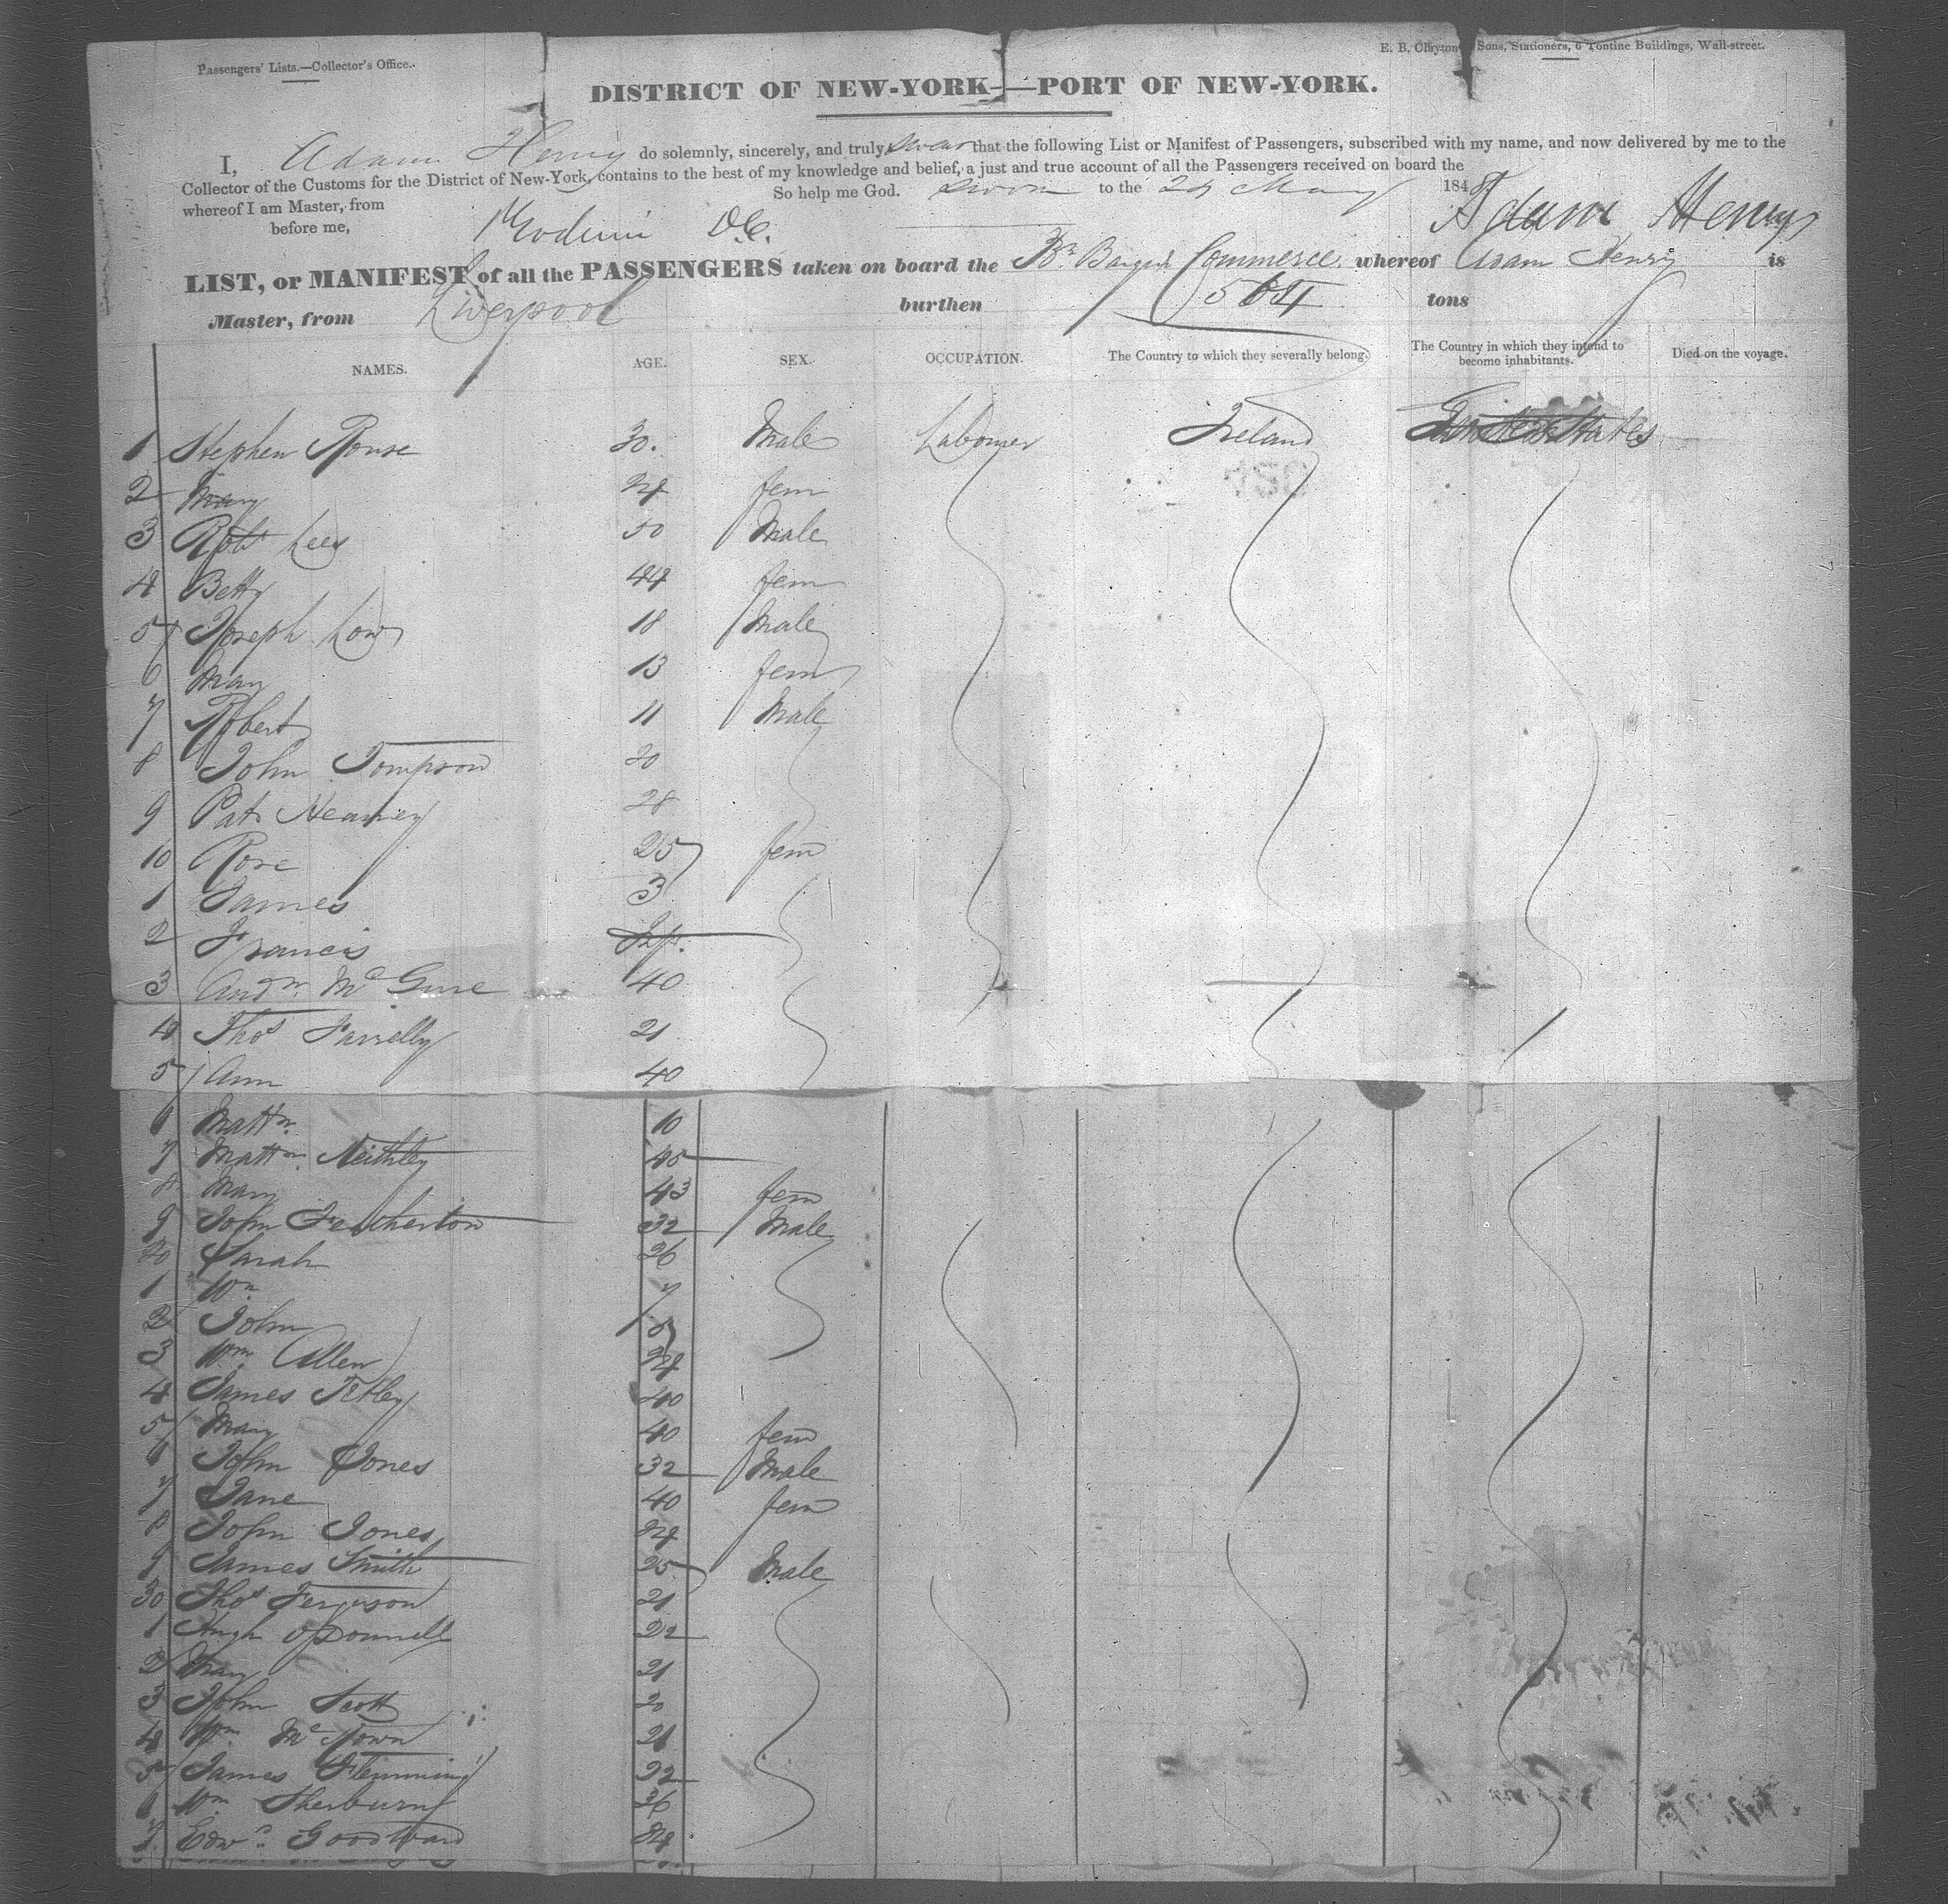 Passengers' Lists.—Collector's Office.
E. B. Clayton Sons, Stationers, 6 Tontine Buildings, Wall-street.
DISTRICT OF NEW-YORK—PORT OF NEW-YORK.
I, Adam Henry do solemnly, sincerely, and truly swear that the following List or Manifest of Passengers, subscribed with my name, and now delivered by me to the
Collector of the Customs for the District of New-York, contains to the best of my knowledge and belief, a just and true account of all the Passengers received on board the
whereof I am Master, from So help me God. sworn to the 24 May 1848
before me, D.C. Adam Henry
LIST, or MANIFEST of all the PASSENGERS taken on board the Br Barque Commerce whereof Adam Henry is
Master, from Liverpool burthen tons
NAMES. AGE. SEX. OCCUPATION. The Country to which they severally belong. The Country in which they intend to become inhabitants. Died on the voyage.
1 Stephen Rouse 30. Male Labourer Ireland United States
2 Mary 24 fem
3 Robt Lees 50 Male
4 Betty 44 fem
5 Joseph Low 18 Male
6 Mary 13 fem
7 Robert 11 Male
8 John Tompson 20
9 Pat Hearney 28
10 Rose 25 fem
1 James 3
2 Francis Inft.
3 Andw McGuire 40
4 Thos Farrelly 21
5 Ann 40
6 Mattw 10
7 Mattw Keithley 45
8 Mary 43 fem
9 John Featherton 32 Male
20 Sarah 26
1 Wm 7
2 John 5
3 Wm Allen 24
4 James Tetley 40
5 Mary 40 fem
6 John Jones 32 Male
7 Jane 40 fem
8 John Jones 24
9 James Smith 25 Male
30 Thos Ferguson 21
1 Hugh O'Donnell 22
2 Mary 21
3 John Scott 20
4 Wm McKown 21
5 James Flemming 22
6 Wm Sherburn 26
7 Edwd Goodward 24